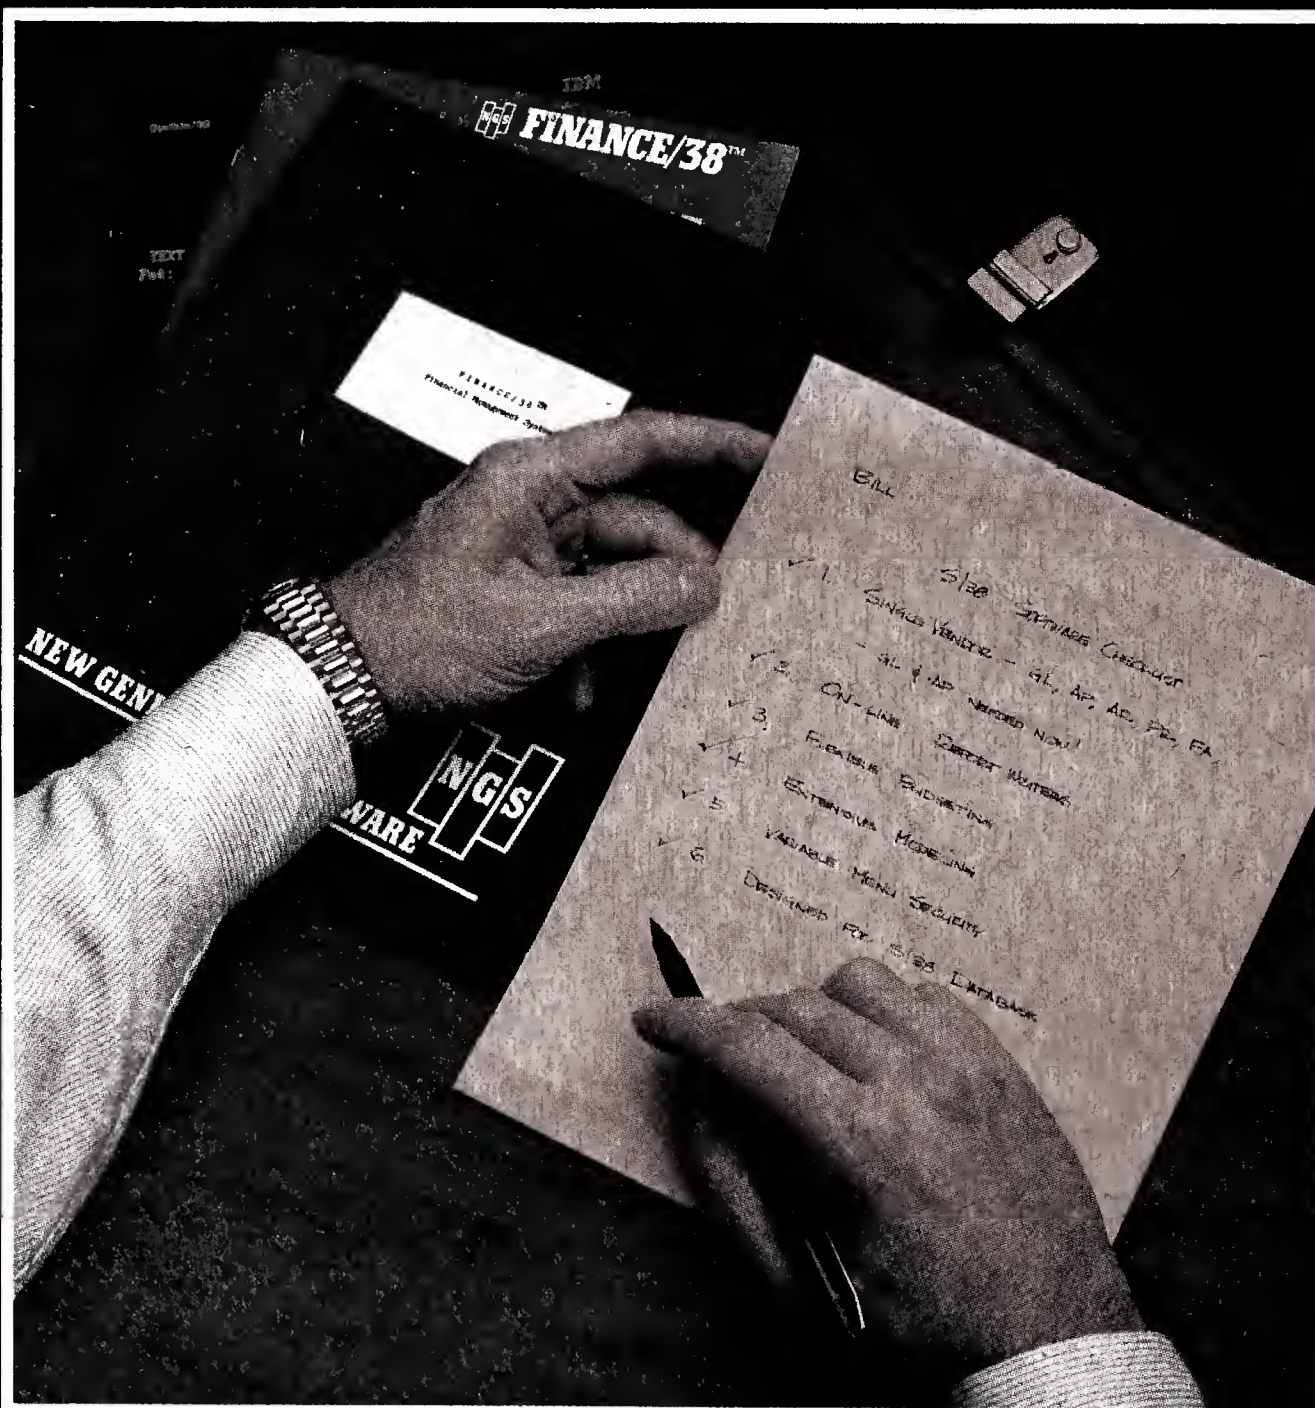 IBM
System/38
NGS FINANCE/38™
TEXT
FINANCE/38™
Financial Management System
BILL
S/38 SOFTWARE CHECKLIST
✓ 1. SINGLE VENDOR - GL, AP, AR, PR, FA
- GL & AP NEEDED NOW!
✓ 2. ON-LINE REPORT WRITERS
✓ 3. FLEXIBLE BUDGETING
✓ 4 EXTENSIVE MODELING
✓ 5 VARIABLE MENU SECURITY
✓ 6 DESIGNED FOR S/38 DATABASE
NEW GEN
WARE
NGS